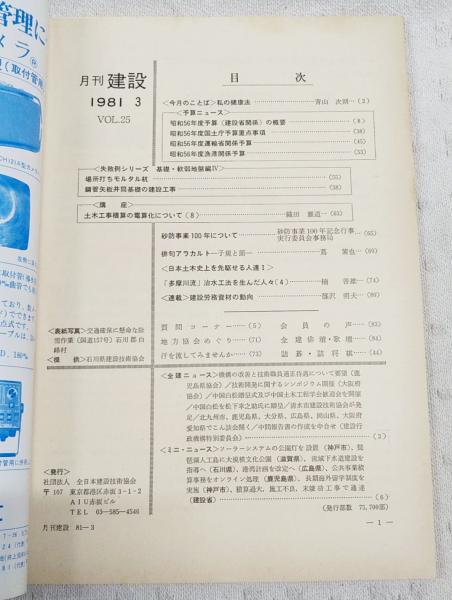 管理に
メラ®
(取付管
月刊 建設
1981 3
VOL.25
目次
<今月のことば>私の健康法……青山 次則…(2)
<予算ニュース>
昭和56年度予算(建設省関係)の概要……(8)
昭和56年度国土庁予算重点事項……(38)
昭和56年度運輸省関係予算……(45)
昭和56年度漁港関係予算……(53)
<失敗例シリーズ 基礎・軟弱地盤編Ⅳ>
場所打ちモルタル杭……(55)
鋼管矢板井筒基礎の建設工事……(58)
<講座>
土木工事積算の電算化について(8)……織田 雅道…(63)
砂防事業100年について……砂防事業100年記念行事実行委員会事務局…(65)
俳句アラカルト―子規と節―……蔦 繁也…(69)
<日本土木史上を先駆せる人達1>
「多摩川流」治水工法を生んだ人々(4)……楠 善雄…(74)
<連載>建設労務資材の動向……篠沢 明夫…(80)
質問コーナー……(5)
会員の声……(83)
地方協会めぐり……(71)
全建俳壇・歌壇……(84)
汗を流してみませんか……(73)
詰碁・詰将棋……(44)
<表紙写真>交通確保に懸命な除
雪作業(国道157号)石川郡白
峰村
<提供>石川県建設技術協会
<全建ニュース>機構の改善と技術職員適正待遇について要望(鹿
児島県協会)/技術開発に関するシンポジウム開催(大阪府
協会)/中国白松贈呈式及び中国土木工程学会歓迎会を開催
/中国白松を松下幸之助氏に贈呈/清水市建設技術協会が発
足/北九州市、鹿児島県、大分県、広島県、岡山県、大阪府
愛知県でこん談会開く/中間報告書の作成を申合せ(建設行
政機構特別委員会)……(3)
<ミニ・ニュース>ソーラーシステムの公園灯を設置(神戸市)、琵
琶湖人工島に大規模文化公園(滋賀県)、流域下水道建設を
指導へ(石川県)、港湾計画を改定へ(広島県)、公共事業積
算事務をオンライン処理(鹿児島県)、長期海外留学制度を
実施(神戸市)、積算過大、施工不良、未竣功工事で通達
(建設省)……(6)
(発行部数 75,700部)
<発行>
社団法人 全日本建設技術協会
〒107 東京都港区赤坂3-1-2
AIU赤坂ビル
TEL 03-585-4546
月刊建設 81-3
― 1 ―